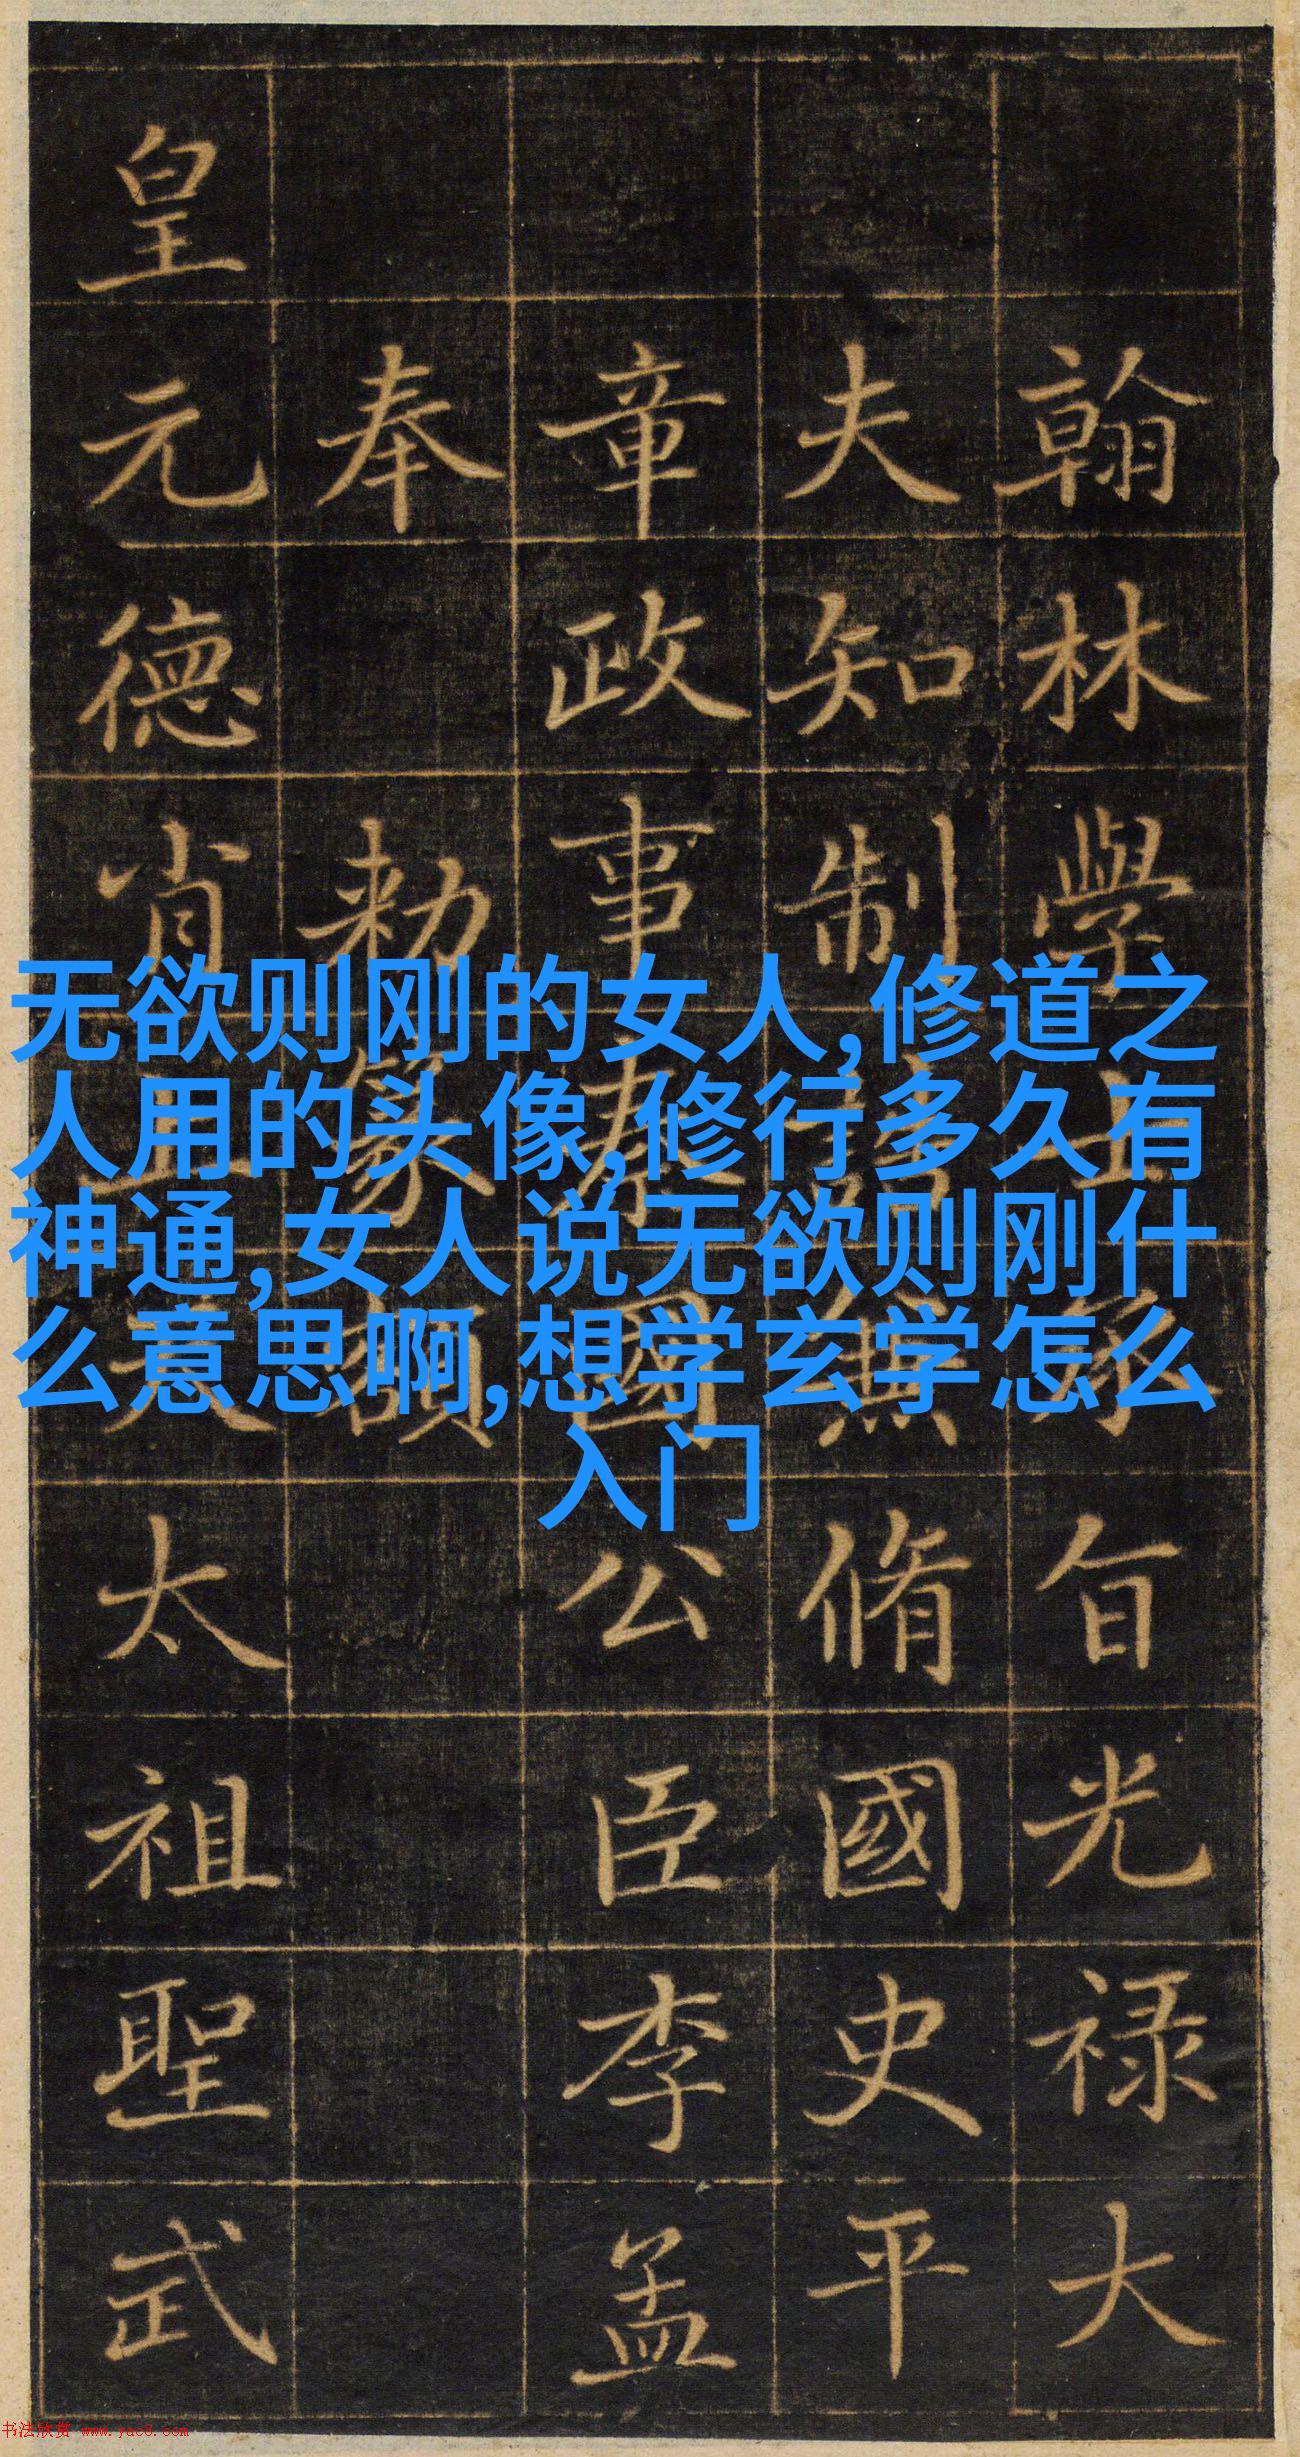 无欲则刚的女人,修道之
人用的头像,修行多久有
神通,女人说无欲则刚什
么意思啊,想学玄学怎么
入门
翰林學士承旨光禄大
夫知制誥兼脩國史平
章政事秦國公臣李孟
奉勅篆額
皇元德肖太祖聖武
书法欣赏 www.yac8.com